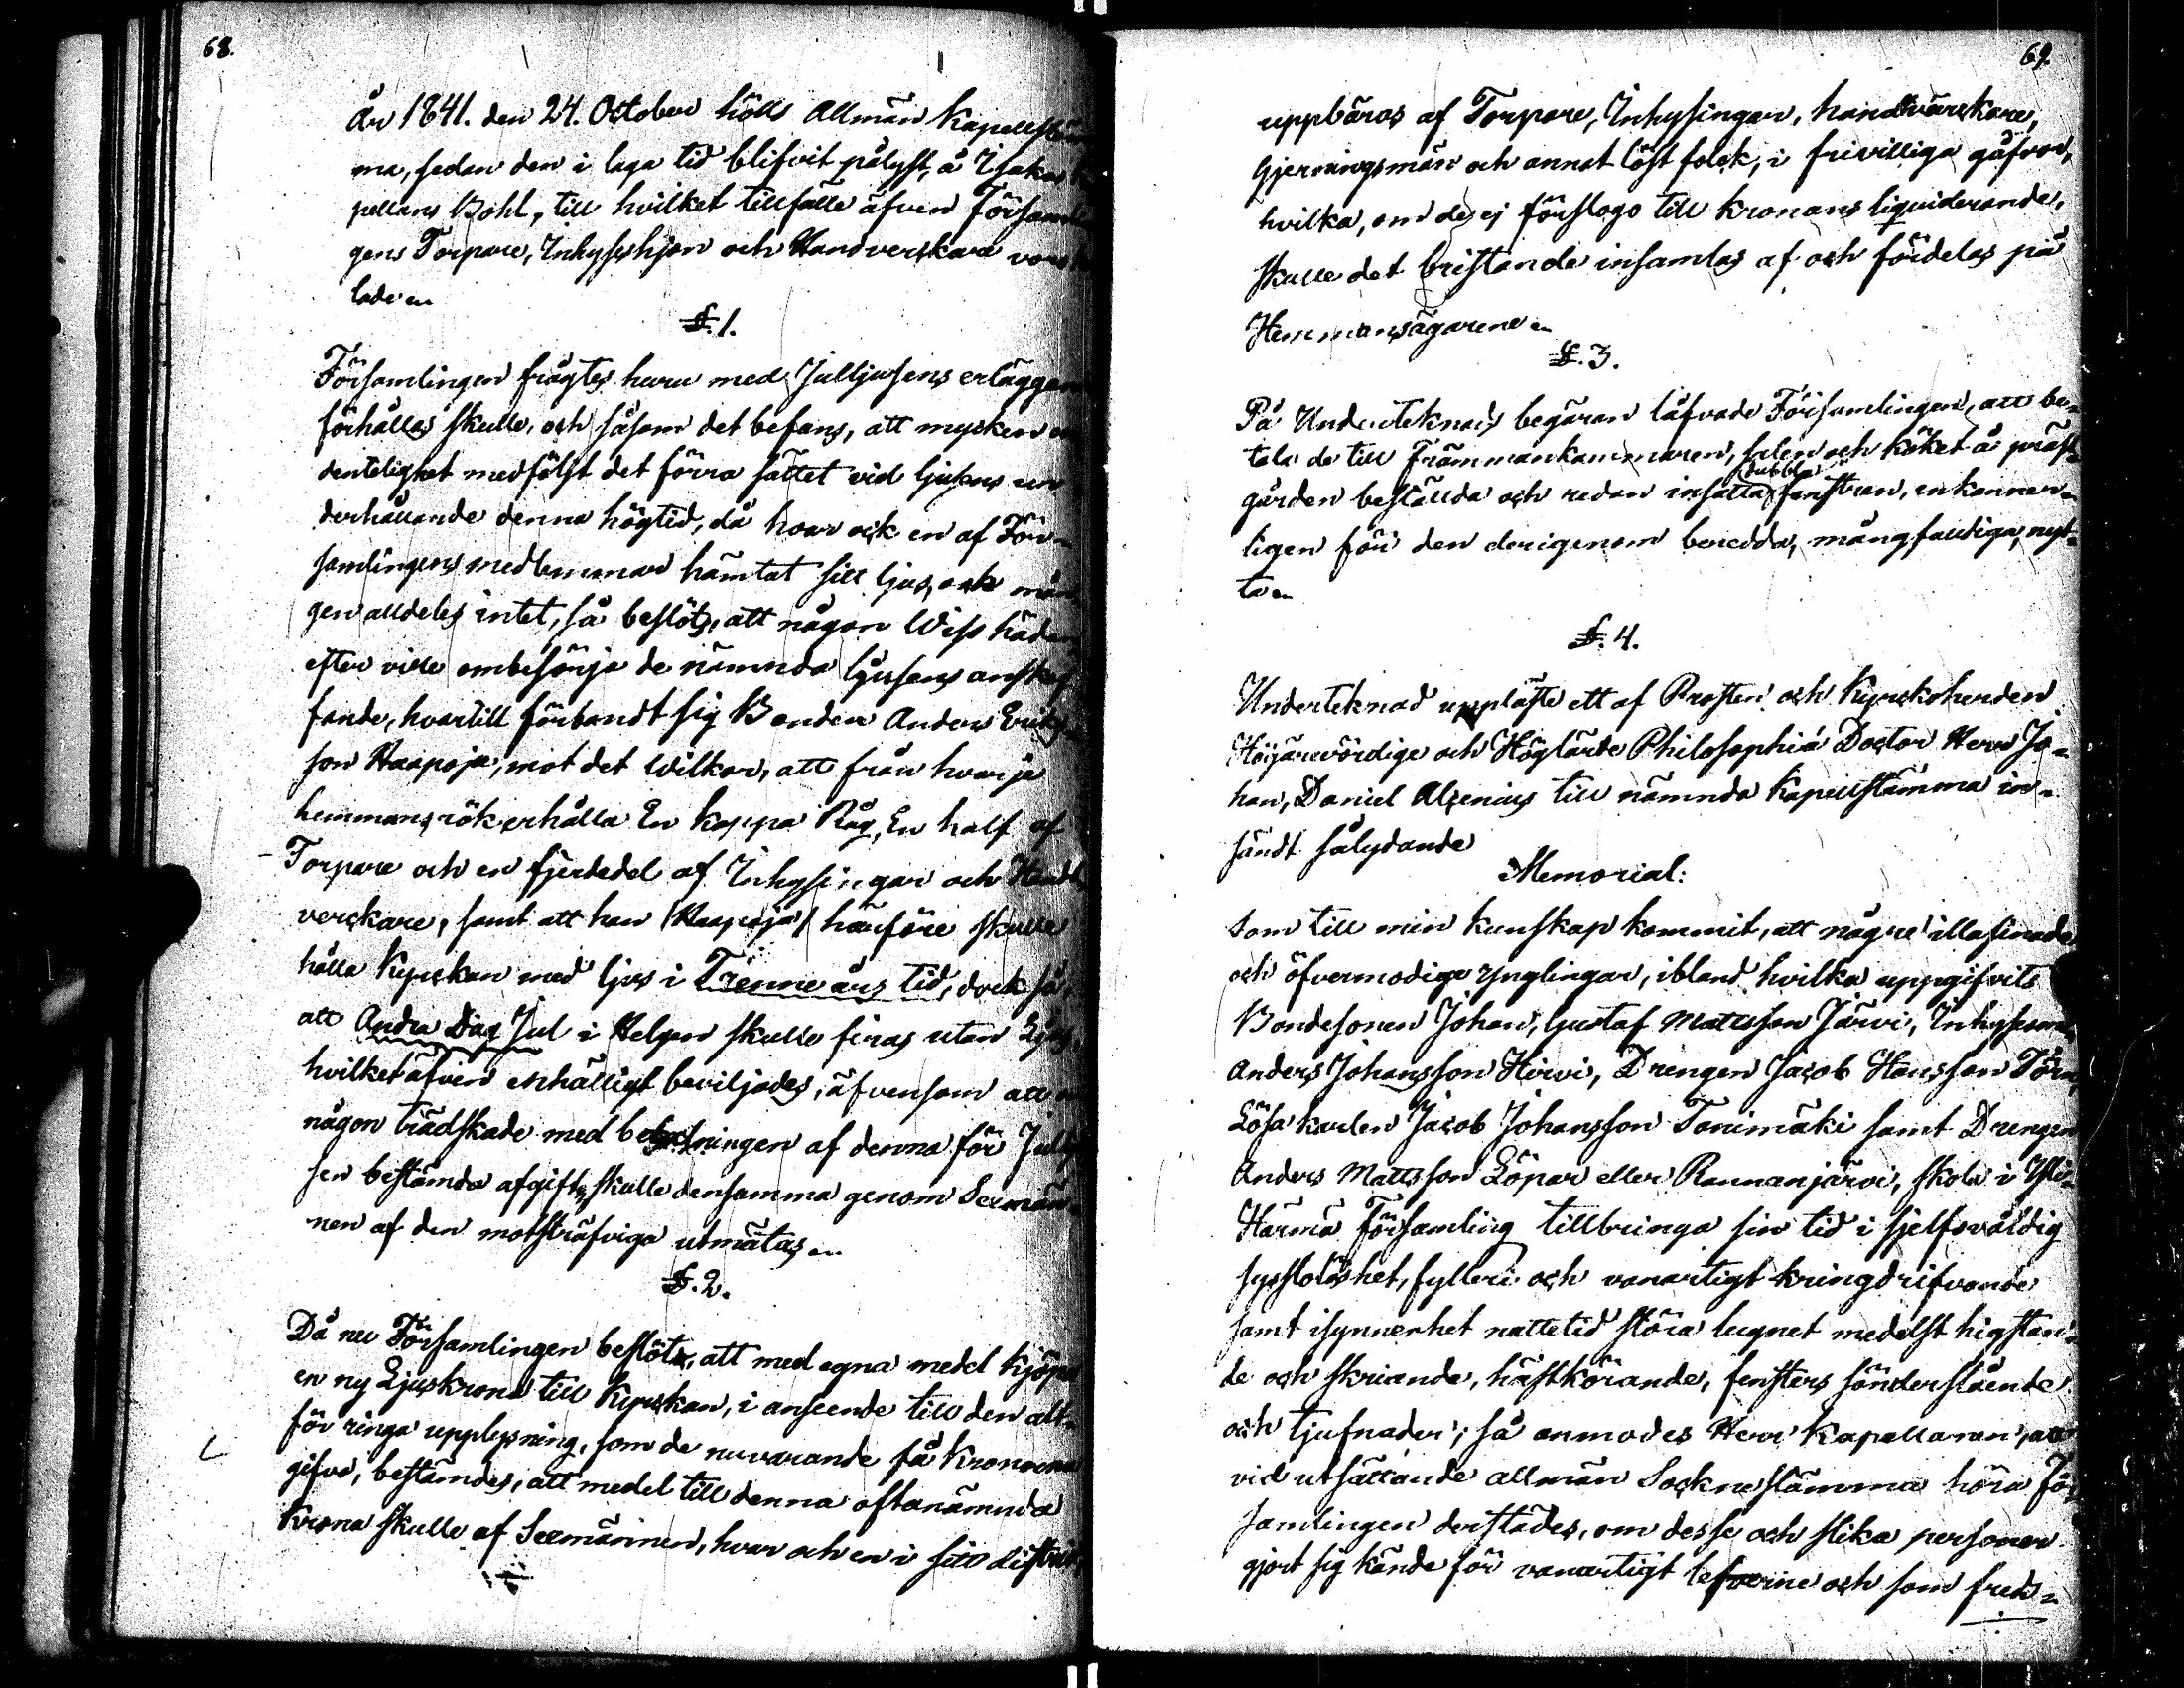 68.
År 1841. den 24. October hölls Allmän Kapellstäm
ma, sedan den i laga tid blifvit pålyst, å Isakas
pellans Bohl, till hvilket tillfälle äfven Församlin
gens Torpare, Inhyseshjon och Handverskare voro
lade
§. 1.
Församlingen frågtes huru med Julljusens erläggan
förhållas skulle, och såsom det befans, att mycken o
dentelighet medfölgt det förra sättet vid ljusens un
derhållande denna högtid, då hvar ock en af För-
samlingens medlemmar hämtat sitt ljus, och mån
gen alldeles intet, så beslöts, att någon Wiss hädan
efter ville ombesörja de nämnda ljusens anskaf
fande, hvartill förbandt sig Bonden Anders Eriks
son Haapoja, mot det Wilkor, att från hvarje
hemmans rök erhålla En kappa Råg, En half af
Torpare och en fjerdedel af Inhysingar och Handt
verskare, samt att han /Haapoja/ härföre skulle
hålla Kyrckan med ljus i Trenne års tid, dock så,
att Andra Dag Jul i Helgen skulle firas utan Ljus,
hvilket äfven enhälligt beviljades, äfvensom att
någon trädskade med betalningen af denna för Jullju
sen bestämda afgift, skulle densamma genom Sexmän-
nen af den motsträfviga utmätas
§. 2.
Då nu Församlingen beslöts, att med egna medel kjöpa
en ny Ljuskrona till Kyrckan, i anseende till den allt
för ringa upplysning, som de nuvarande få Kronorna
gifva, bestämdes, att medel till denna oftanämnda
Krona skulle af Sexmännen, hvar och en i sitt district
69.
uppbäras af Torpare, Inhysingar, handtverskare,
Gjerningsmän och annat löst folck, i frivilliga gåfvor,
hvilka, om de ej förslogo till kronans liquiderande,
skulle det bristande insamlas af och fördelas på
Hemmansägarene
§. 3.
På Undertecknads begäran låfvade Församlingen, att be-
tala de till Främmankammaren, salen och köket å präst-
dubbla
gården beställda och redan insatta fenstren, enkanner-
ligen för den derigenom beredda, mångfaldiga, nyt-
ta
§. 4.
Underteknad uppläste ett af Prosten och Kyrckoherden
Höjärevördige och Höglärde Philosophiä Doctor Herr Jo-
han, Daniel Alcenius till nämnda Kapellstämma in-
sändt sålydande
Memorial:
Som till min kunskap kommit, att någre illasinade
och öfvermodige Ynglingar, ibland hvilka uppgifvits
Bondesonen Johan, Gustaf Mattsson Järvi, Inhyses
Anders Johansson Hirvi, Drengen Jacob Hansson
Lösa karlen Jacob Johansson Tanimäki samt Drengen
Anders Mattsson Löpar eller Rannanjärvi, skola i Yli-
Härmä Församling tillbringa sin tid i sjelfsvåldig
sysslolöshet, fylleri och vanartigt kringdrifvande
samt isynnerhet nattetid störa lugnet medelst
de och skriande, hästkörande, fensters sönderslående
och tjufnader; så anmodes Herr Kapellanen, att
vid utsättande allmän Socknestämma höra För
samlingen derstädes, om desse och slika personer
gjort sig kände för vanartigt lefverne och som freds-